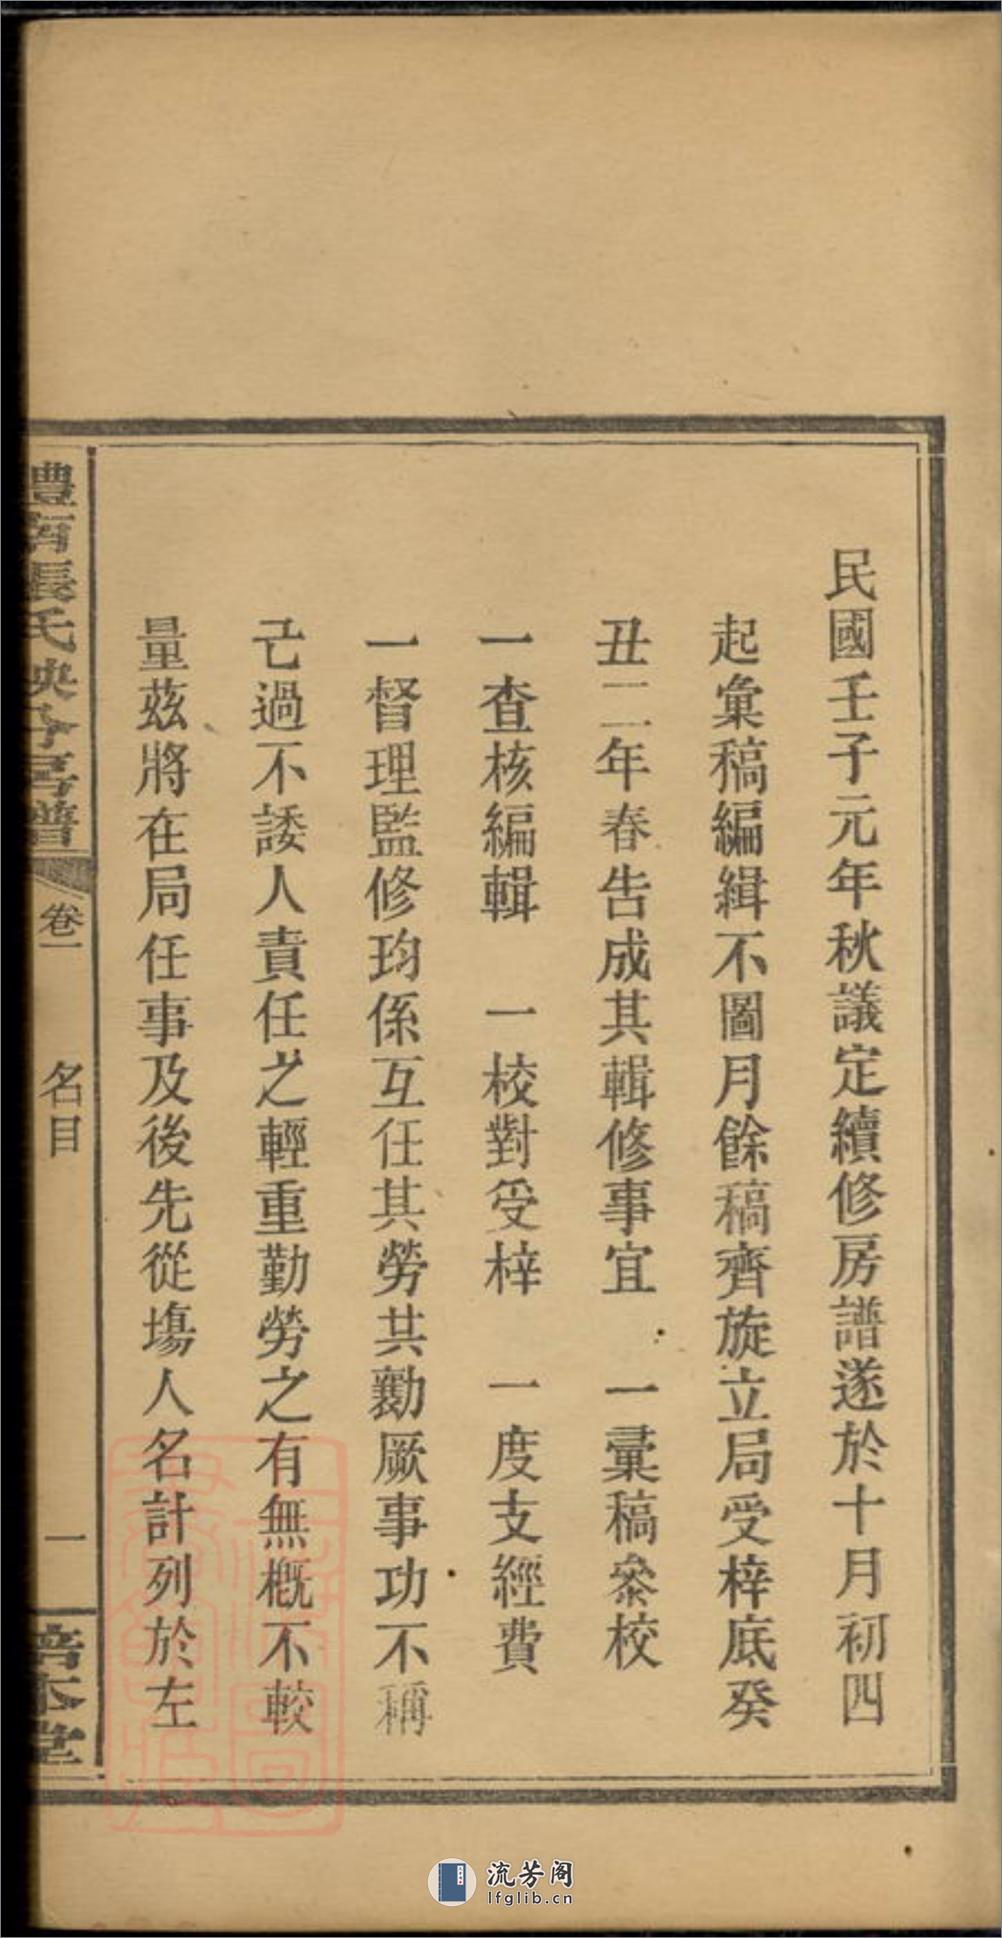 民國壬子元年秋議定續修房譜遂於十月初四
起彙稿編緝不圖月餘稿齊旋立局受梓底癸
丑二年春告成其輯修事宜　一彙稿叅校
一查核編輯　一校對受梓　一度支經費
一督理監修均係互任其勞共勷厥事功不稱
己過不諉人責任之輕重勤勞之有無概不較
量茲將在局任事及後先從塲人名計列於左
澧南張氏映今房譜
卷一
名目
一
培本堂
流芳阁
lfglib.cn